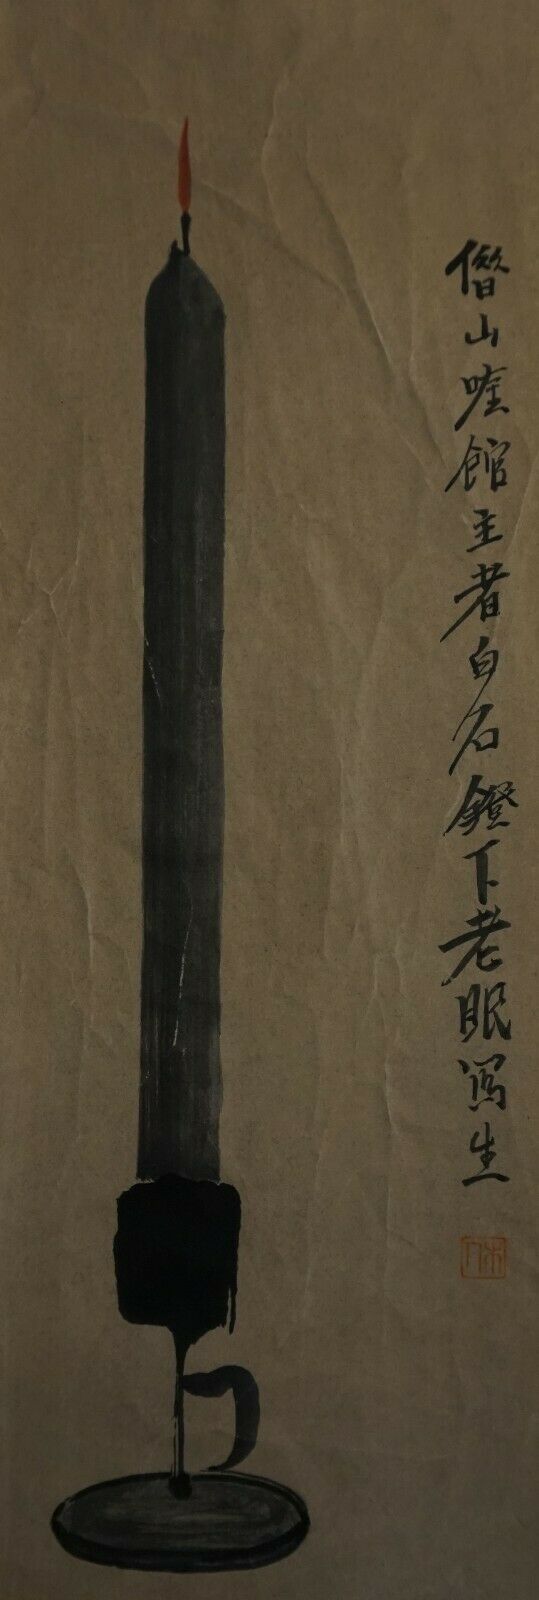 借山唫館主者白石鐙下老眼寫生
木人